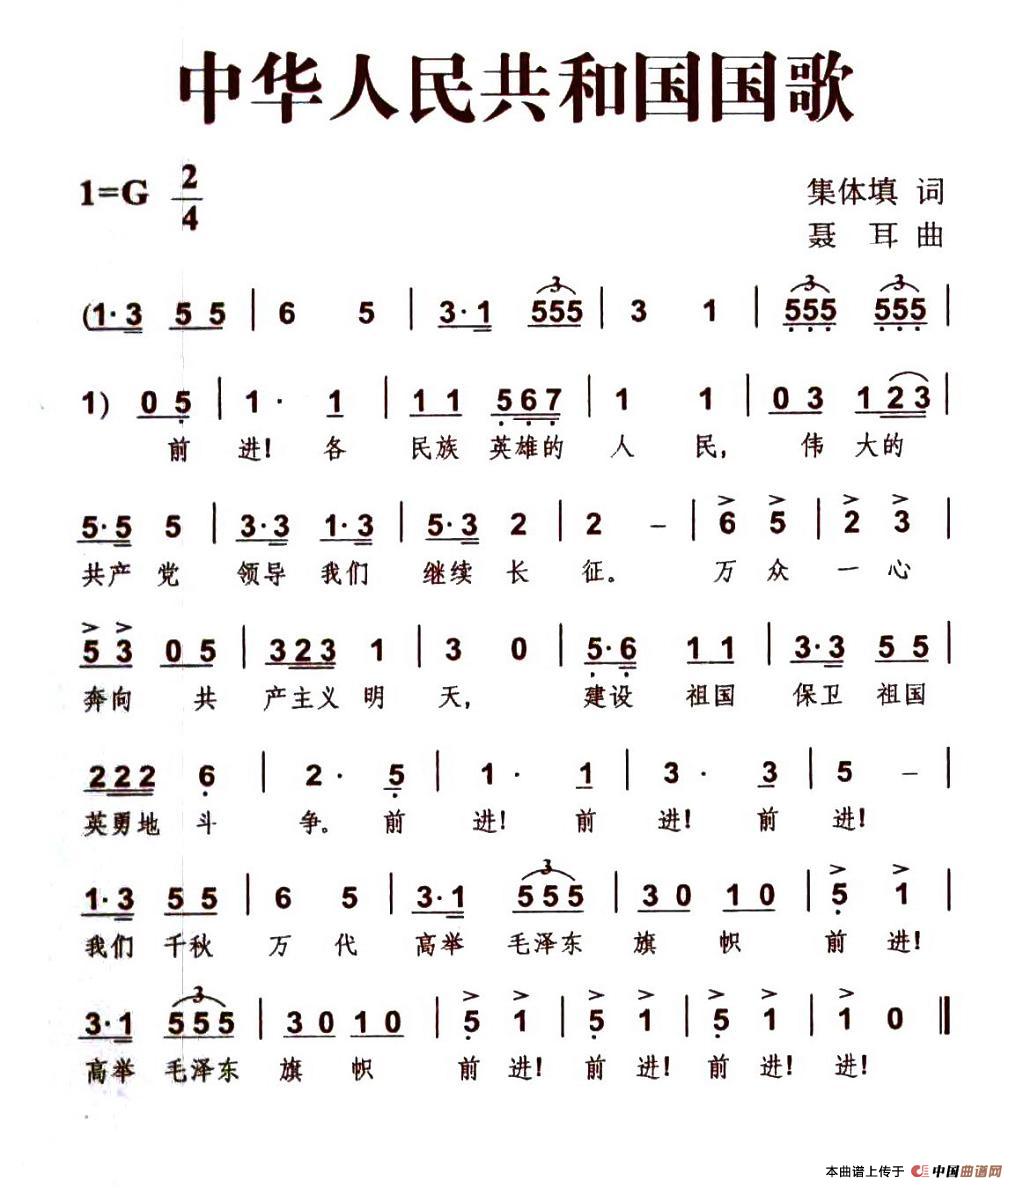 中华人民共和国国歌
1=G 2/4
集体填 词
聂 耳 曲
(1·3 5 5 | 6 5 | 3·1 555 | 3 1 | 555 555 |
1) 0 5 | 1 · 1 | 1 1 5 6 7 | 1 1 | 0 3 1 2 3 |
前 进! 各 民族 英雄的 人 民, 伟 大的
5·5 5 | 3·3 1·3 | 5·3 2 | 2 – | 6 5 | 2 3 |
共产 党 领导 我们 继续 长 征。 万 众 一 心
5 3 0 5 | 3 2 3 1 | 3 0 | 5·6 1 1 | 3·3 5 5 |
奔向 共 产主义 明 天, 建设 祖国 保卫 祖国
2 2 2 6 | 2 · 5 | 1 · 1 | 3 · 3 | 5 – |
英勇地 斗 争。 前 进! 前 进! 前 进!
1·3 5 5 | 6 5 | 3·1 5 5 5 | 3 0 1 0 | 5 1 |
我们 千秋 万 代 高举 毛泽东 旗 帜 前 进!
3·1 5 5 5 | 3 0 1 0 | 5 1 | 5 1 | 5 1 | 1 0 ‖
高举 毛泽东 旗 帜 前 进! 前 进! 前 进! 进!
本曲谱上传于 中国曲谱网